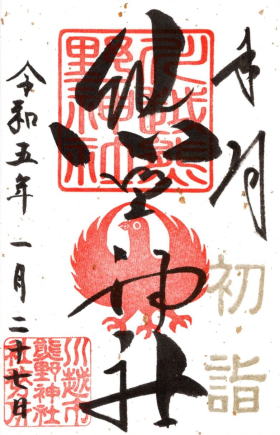 初詣
熊野神社
川越熊
野神社
令和五年一月二十七日
川越市
熊野神社